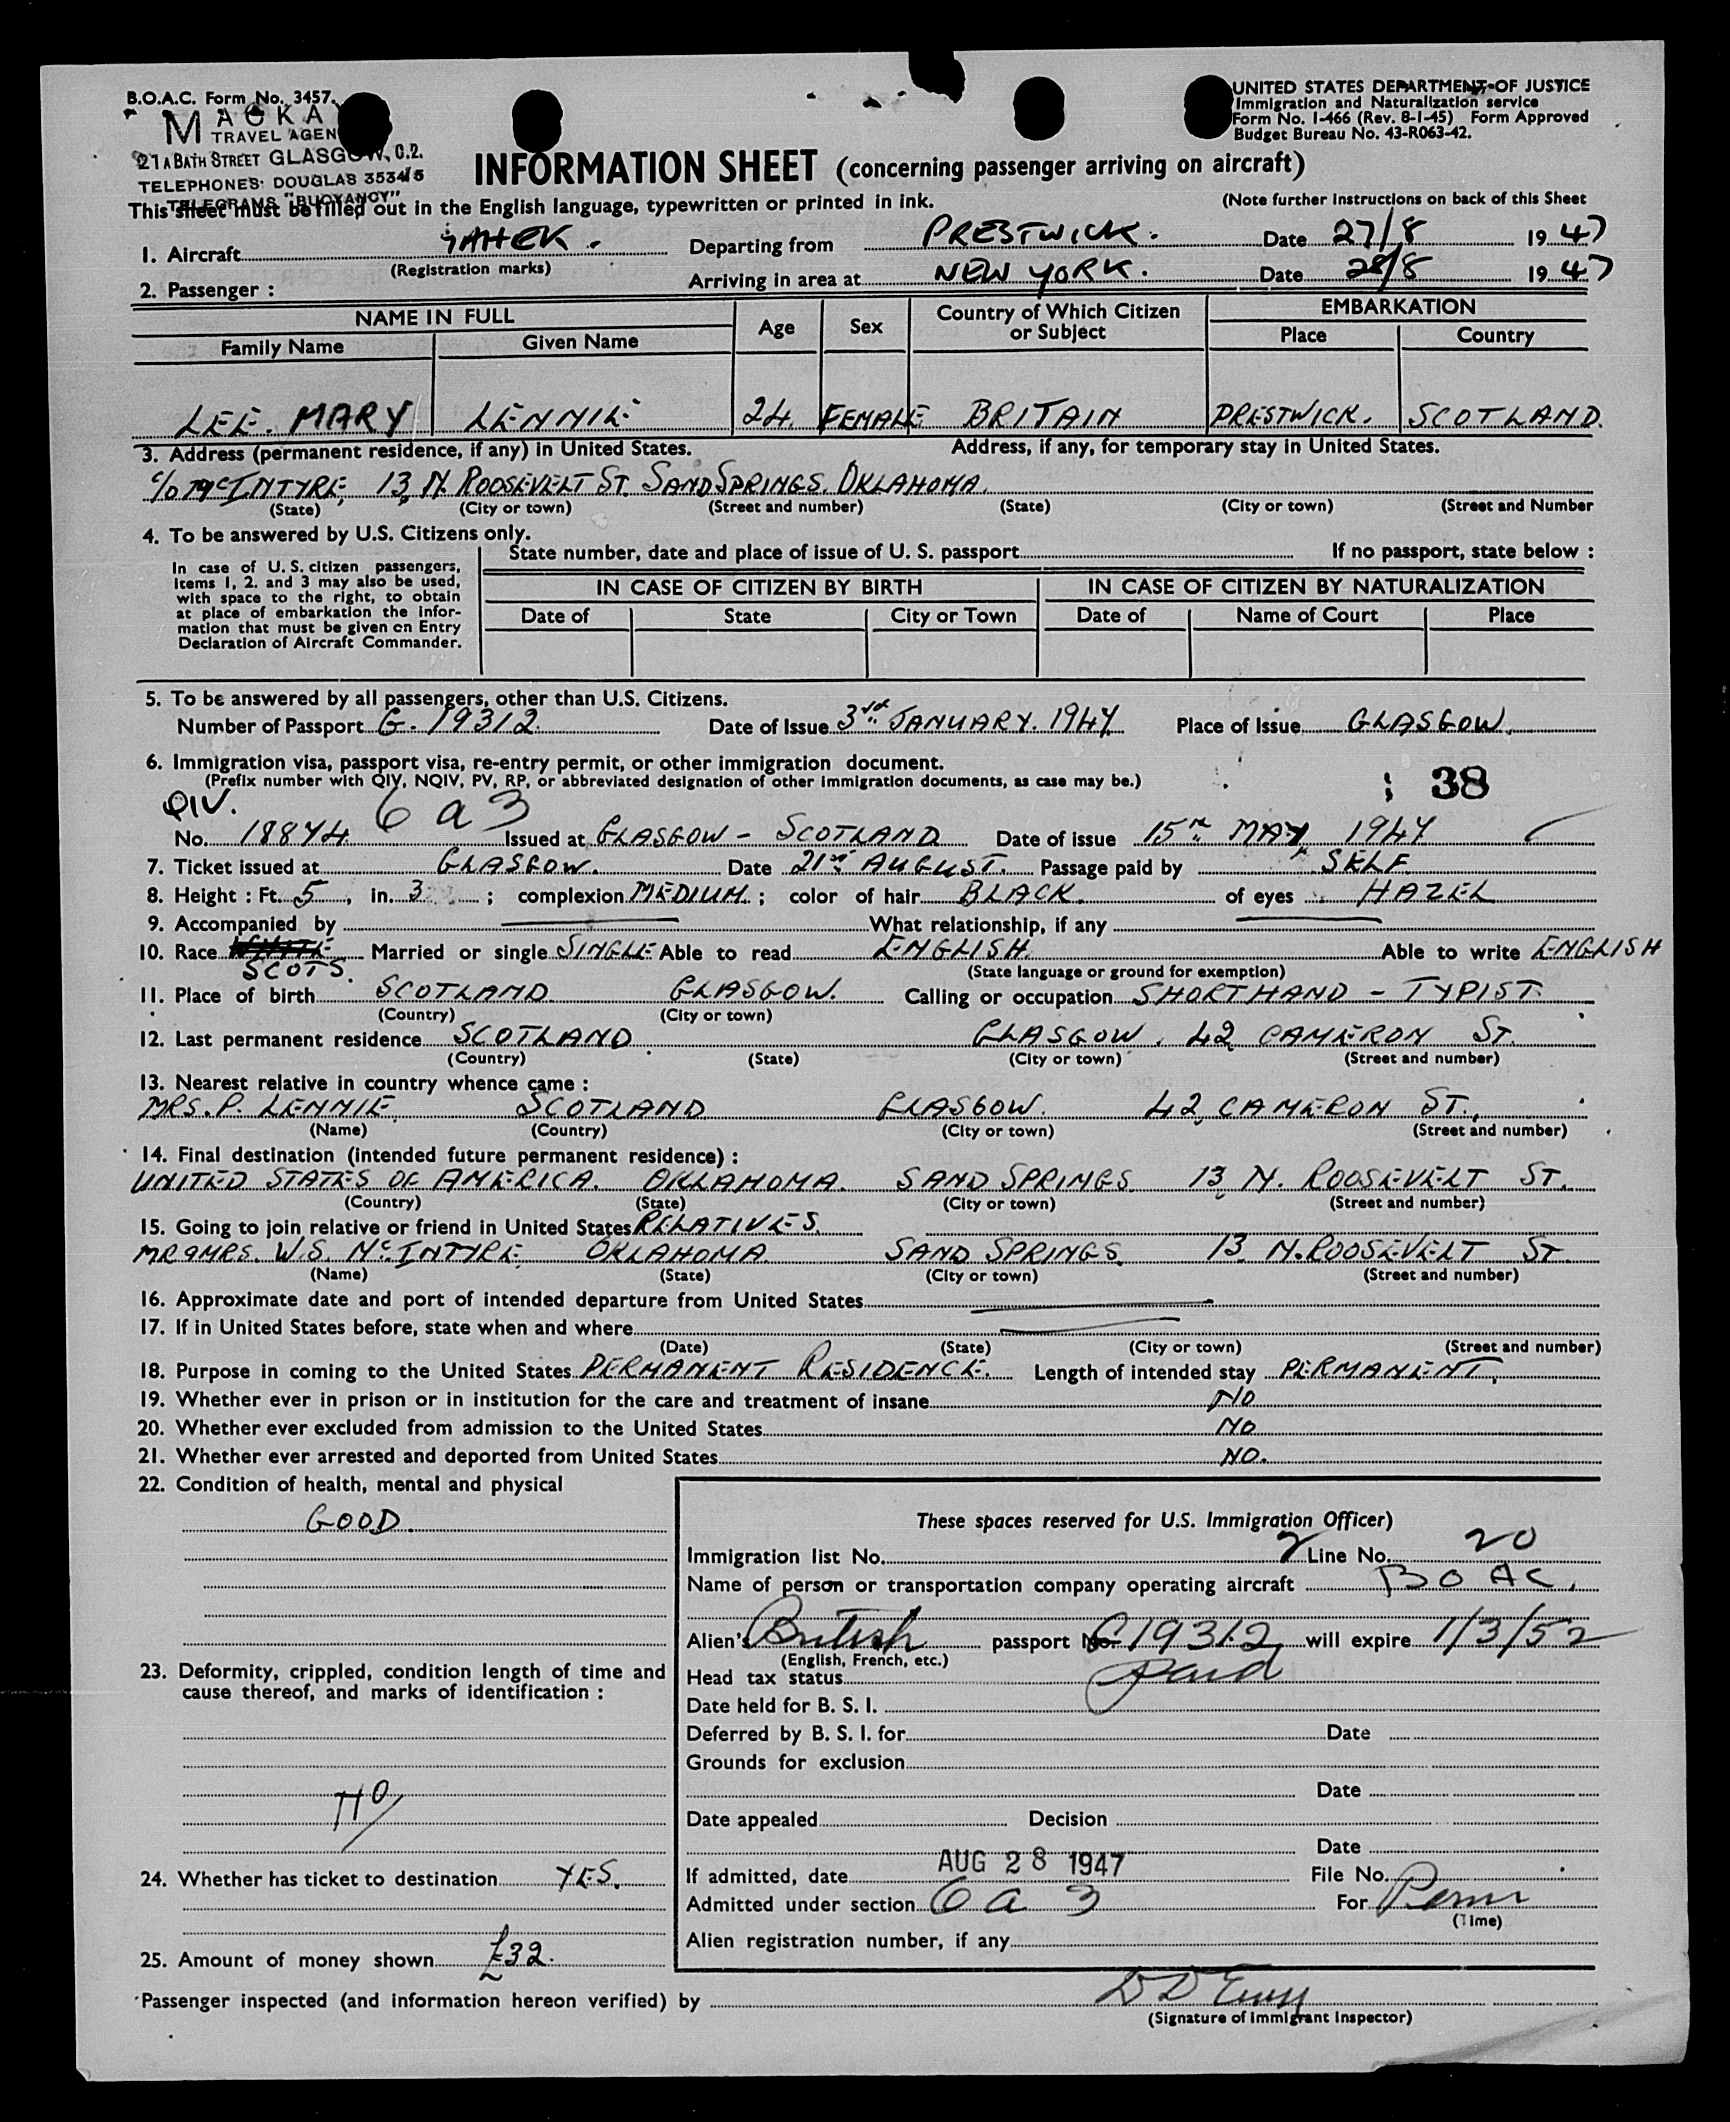 B.O.A.C. Form No. 3457.
MACKA
TRAVEL AGEN
21A BATH STREET GLASGOW, C.2.
TELEPHONES: DOUGLAS 3534/5
TELEGRAMS "BUOYANCY"
UNITED STATES DEPARTMENT OF JUSTICE
Immigration and Naturalization service
Form No. I-466 (Rev. 8-1-45) Form Approved
Budget Bureau No. 43-R063-42.
INFORMATION SHEET (concerning passenger arriving on aircraft)
This sheet must be filled out in the English language, typewritten or printed in ink. (Note further instructions on back of this Sheet
1. Aircraft GAHEK. Departing from PRESTWICK. Date 27/8 1947
(Registration marks) Arriving in area at NEW YORK. Date 28/8 1947
2. Passenger :
NAME IN FULL Age Sex Country of Which Citizen or Subject EMBARKATION
Family Name Given Name Place Country
LEE. MARY LENNIE 24. FEMALE BRITAIN PRESTWICK. SCOTLAND.
3. Address (permanent residence, if any) in United States. Address, if any, for temporary stay in United States.
c/o McINTYRE, 13, N. ROOSEVELT ST. SAND SPRINGS. OKLAHOMA.
(State) (City or town) (Street and number) (State) (City or town) (Street and Number
4. To be answered by U.S. Citizens only.
State number, date and place of issue of U. S. passport If no passport, state below :
In case of U. S. citizen passengers,
items 1, 2. and 3 may also be used,
with space to the right, to obtain
at place of embarkation the infor-
mation that must be given on Entry
Declaration of Aircraft Commander.
IN CASE OF CITIZEN BY BIRTH IN CASE OF CITIZEN BY NATURALIZATION
Date of State City or Town Date of Name of Court Place
5. To be answered by all passengers, other than U.S. Citizens.
Number of Passport G. 19312. Date of Issue 3rd JANUARY. 1947. Place of issue GLASGOW.
6. Immigration visa, passport visa, re-entry permit, or other immigration document.
(Prefix number with QIV, NQIV, PV, RP, or abbreviated designation of other immigration documents, as case may be.) 38
QIV. 6 a 3
No. 18874. Issued at GLASGOW - SCOTLAND Date of issue 15TH MAY, 1947
7. Ticket issued at GLASGOW. Date 21st AUGUST. Passage paid by SELF.
8. Height : Ft. 5, in. 3 ; complexion MEDIUM. ; color of hair BLACK. of eyes HAZEL
9. Accompanied by What relationship, if any
10. Race WHITE Married or single SINGLE Able to read ENGLISH. Able to write ENGLISH
SCOTS. (State language or ground for exemption)
11. Place of birth SCOTLAND GLASGOW. Calling or occupation SHORTHAND - TYPIST.
(Country) (City or town)
12. Last permanent residence SCOTLAND GLASGOW. 42 CAMERON ST.
(Country) (State) (City or town) (Street and number)
13. Nearest relative in country whence came :
MRS. P. LENNIE SCOTLAND GLASGOW. 42, CAMERON ST.,
(Name) (Country) (City or town) (Street and number)
14. Final destination (intended future permanent residence) :
UNITED STATES OF AMERICA. OKLAHOMA. SAND SPRINGS. 13, N. ROOSEVELT ST.
(Country) (State) (City or town) (Street and number)
15. Going to join relative or friend in United States RELATIVES.
MR & MRS. W.S. McINTYRE, OKLAHOMA. SAND SPRINGS. 13 N. ROOSEVELT ST.
(Name) (State) (City or town) (Street and number)
16. Approximate date and port of intended departure from United States
17. If in United States before, state when and where
(Date) (State) (City or town) (Street and number)
18. Purpose in coming to the United States PERMANENT RESIDENCE. Length of intended stay PERMANENT.
19. Whether ever in prison or in institution for the care and treatment of insane NO
20. Whether ever excluded from admission to the United States NO
21. Whether ever arrested and deported from United States NO.
22. Condition of health, mental and physical
GOOD.
These spaces reserved for U.S. Immigration Officer)
Immigration list No. 2 Line No. 20
Name of person or transportation company operating aircraft BOAC.
Alien's British passport No. G19312 will expire 1/3/52
(English, French, etc.)
23. Deformity, crippled, condition length of time and
cause thereof, and marks of identification :
NO
Head tax status paid
Date held for B. S. I.
Deferred by B. S. I. for Date
Grounds for exclusion
Date
Date appealed Decision
Date
24. Whether has ticket to destination YES.
If admitted, date AUG 28 1947 File No.
Admitted under section 6 a 3 For Perm
(Time)
Alien registration number, if any
25. Amount of money shown £32.
Passenger inspected (and information hereon verified) by
(Signature of Immigrant Inspector)